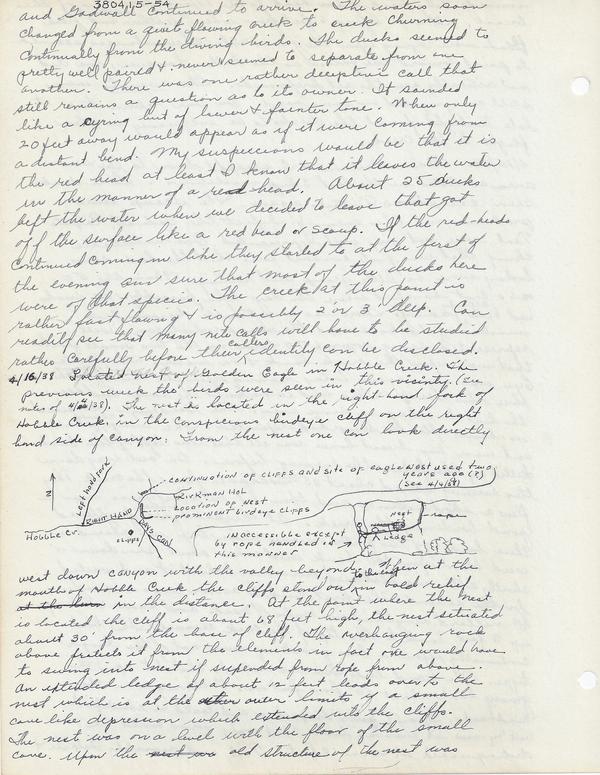 380415-54
and Gadwall continued to arrive. The waters soon
changed from a quiet flowing creek to creek churning
continually from the diving birds. The ducks seemed to
pretty well paired & never seemed to separate from one
another. There was one rather deceptive call that
still remains a question as to its owner. It sounded
like a cyring but of lower & fainter tone. When only
20 feet away would appear as if it were coming from
a distant bend. My suspecions would be that it is
the red head at least I know that it leaves the water
in the manner of a read head. About 25 ducks
left the water when we decided to leave that got
off the surface like a red head or scaup. If the red-heads
continued coming in like they started to at the first of
the evening im sure that most of the ducks here
were of that species. The creek at this point is
rather fast flowing & is possibly 2 or 3' deep. Can
readily see that many nite calls will have to be studied
rather carefully before their callers identity can be disclosed.
4/16/38 Located nest of Golden Eagle in Hobble Creek. The
previous week the birds were seen in this vicinity. (see
notes of 38). The nest is located in the right-hand fork of
Hobble Creek. in the conspicuous birdeye cliff on the right
hand side of canyon. From the nest one can look directly
N
Left hand fork
Hobble Cr.
RIGHT HAND
CLIFFS
DAYS CAN
CONTINUATION OF CLIFFS AND SITE OF EAGLE NEST USED TWO
YEARS AGO (?)
(see 4/4/38)
Kirkman Hol
LOCATION OF NEST
PROMINENT BIRDEYE CLIFFS
INACCESSIBLE EXCEPT
BY ROPE HANDLED IN
THIS MANNER
Nest
rope
Ledge
west down canyon with the valley beyond. When at the
mouth of Hobble Creek the cliffs stand out in bold relief
in the distance. At the point where the nest
is located the cliff is about 68 feet high, the nest situated
about 30' from the base of cliff. The overhanging rock
above protects it from the elements in fact one would have
to swing into nest if supended from rope from above.
An extended ledge of about 12 feet leads over to the
nest which is at the outer limits of a small
cave like depression which extended into the cliffs.
The nest was on a level with the floor of the small
cave. Upon the nest was old structure of the nest was